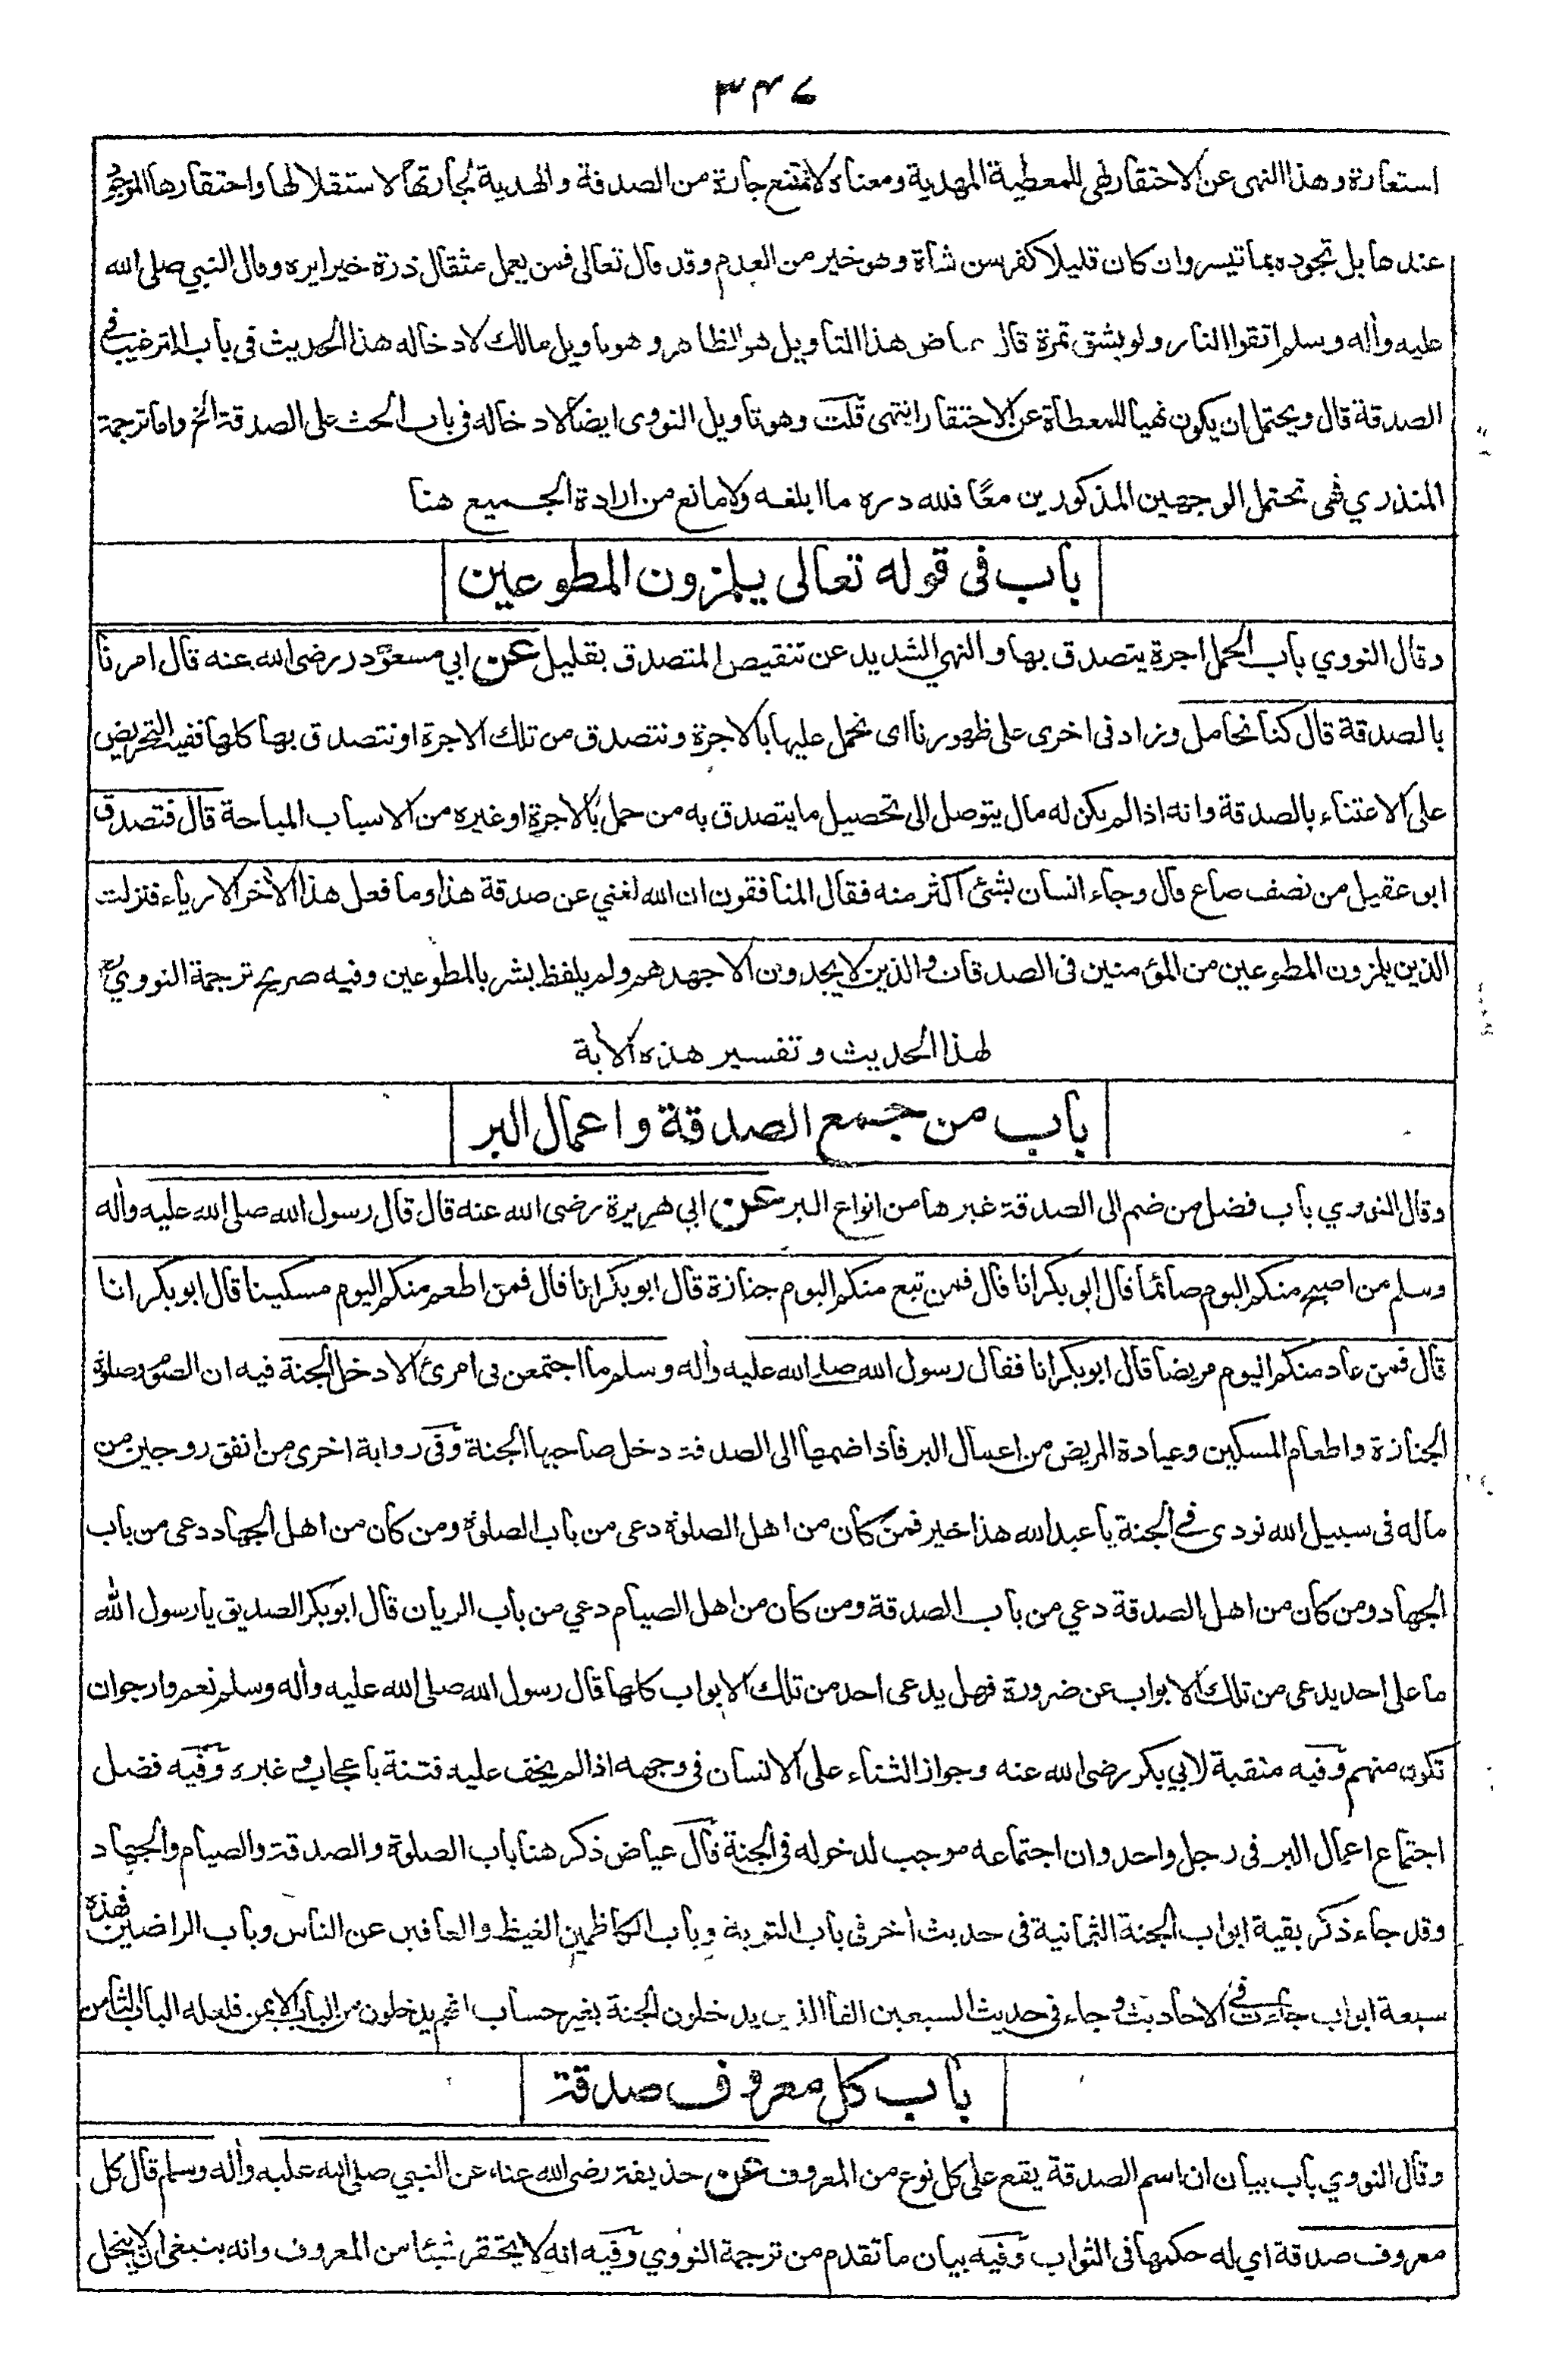 ٣٤٧
استعارة وهذا النهى عن الاحتقار نهى للمعطية المهدية ومعناه لا تمتنع جارة من الصدقة والهدية لجارتها لاستقلالها واحتقارها الموجود
عندها بل تجود بما تيسر وان كان قليلا كفرسن شاة وهو خير من العدم وقد قال تعالى فمن يعمل مثقال ذرة خيرا يره وقال النبي صلى الله
عليه وأله وسلم اتقوا النار ولو بشق تمرة قال عياض هذا التاويل هو الظاهر وهو تاويل مالك لادخاله هذا الحديث فى باب الترغيب فى
الصدقة قال ويحتمل ان يكون نهيا للمعطاة عن الاحتقار انتهى قلت وهو تاويل النووى ايضا لادخاله فى باب الحث على الصدقة الخ واما ترجمة
المنذري فهى تحتمل الوجهين المذكورين معًا فلله دره ما ابلغه ولا مانع من ارادة الجميع هنا
باب فى قوله تعالى يلمزون المطوعين
وقال النووي باب الحمل اجرة يتصدق بها والنهي الشديد عن تنقيص المتصدق بقليل عن ابي مسعود رضى الله عنه قال امرنا
بالصدقة قال كنا نحامل وزاد فى اخرى على ظهورنا اى نحمل عليها بالاجرة ونتصدق من تلك الاجرة او نتصدق بها كلها ففيه التحريض
على الاعتناء بالصدقة وانه اذا لم يكن له مال يتوصل الى تحصيل ما يتصدق به من حمل بالاجرة او غيره من الاسباب المباحة قال فتصدق
ابو عقيل من نصف صاع قال وجاء انسان بشئ اكثر منه فقال المنافقون ان الله لغني عن صدقة هذا وما فعل هذا الأخر الا رياء فنزلت
الذين يلمزون المطوعين من المؤمنين فى الصدقات والذين لا يجدون الا جهدهم ولم يلفظ بشر بالمطوعين وفيه صريح ترجمة النووي
لهذا الحديث وتفسير هذه الأية
باب من جمع الصدقة واعمال البر
وقال النووي باب فضل من ضم الى الصدقة غيرها من انواع البر عن ابي هريرة رضى الله عنه قال قال رسول الله صلى الله عليه وأله
وسلم من اصبح منكم اليوم صائما قال ابو بكر انا قال فمن تبع منكم اليوم جنازة قال ابو بكر انا قال فمن اطعم منكم اليوم مسكينا قال ابو بكر انا
قال فمن عاد منكم اليوم مريضا قال ابو بكر انا فقال رسول الله صلى الله عليه وأله وسلم ما اجتمعن فى امرئ الا دخل الجنة فيه ان الصوم وصلوة
الجنازة واطعام المسكين وعيادة المريض من اعمال البر فاذا ضمها الى الصدقة دخل صاحبها الجنة وفى رواية اخرى من انفق زوجين من
ماله فى سبيل الله نودى فى الجنة يا عبد الله هذا خير فمن كان من اهل الصلوة دعى من باب الصلوة ومن كان من اهل الجهاد دعى من باب
الجهاد ومن كان من اهل الصدقة دعي من باب الصدقة ومن كان من اهل الصيام دعي من باب الريان قال ابو بكر الصديق يا رسول الله
ما على احد يدعى من تلك الابواب عن ضرورة فهل يدعى احد من تلك الابواب كلها قال رسول الله صلى الله عليه وأله وسلم نعم وارجو ان
تكون منهم وفيه منقبة لابي بكر رضى الله عنه وجواز الثناء على الانسان فى وجهه اذا لم يخف عليه فتنة باعجاب وغيره وفيه فضل
اجتماع اعمال البر فى رجل واحد وان اجتماعه موجب لدخوله فى الجنة قال عياض ذكر هنا باب الصلوة والصدقة والصيام والجهاد
وقد جاء ذكر بقية ابواب الجنة الثمانية فى حديث أخر فى باب التوبة وباب الكاظمين الغيظ والعافين عن الناس وباب الراضين فهذه
سبعة ابواب جاءت فى الاحاديث وجاء فى حديث السبعين الفا الذين يدخلون الجنة بغير حساب انهم يدخلون من الباب الايمن فلعله الباب الثامن
باب كل معروف صدقة
وقال النووي باب بيان ان اسم الصدقة يقع على كل نوع من المعروف عن حذيفة رضى الله عنه عن النبي صلى الله عليه وأله وسلم قال كل
معروف صدقة اي له حكمها فى الثواب وفيه بيان ما تقدم من ترجمة النووي وفيه انه لا يحتقر شيئا من المعروف وانه ينبغى ان لا يبخل